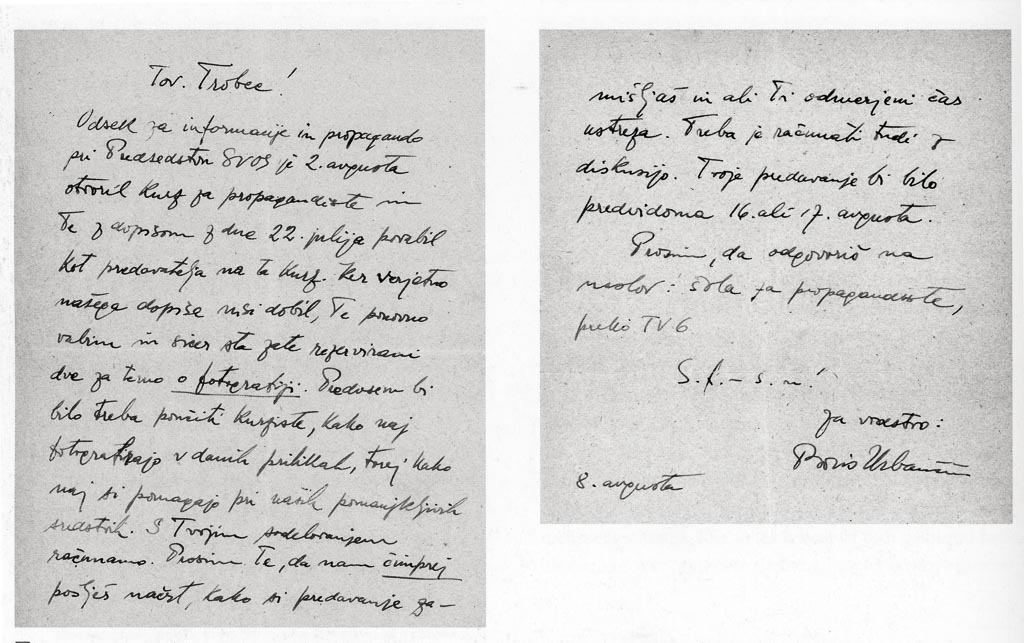 Tov. Trobec!
Odsek za informacije in propagando
pri Predsedstvu SVOS je 2. avgusta
otvoril kurz za propagandiste in
Te z dopisom z dne 22. julija povabil
kot predavatelja na ta kurz. Ker verjetno
našega dopisa nisi dobil, Te ponovno
vabim in sicer sta zate rezervirani
dve za temo o fotografiji. Predvsem bi
bilo treba poučiti kurziste, kako naj
fotografirajo v danih prilikah, torej kako
naj si pomagajo pri naših pomanjkljivih
sredstvih. S Tvojim sodelovanjem
računamo. Prosim Te, da nam čimprej
pošlješ načrt, kako si predavanje za-
mišljaš in ali Ti odmerjeni čas
ustreza. Treba je računati tudi z
diskusijo. Tvoje predavanje bi bilo
predvidoma 16. ali 17. avgusta.
Prosim, da odgovoriš na
naslov: šola za propagandiste,
preko TV 6
S. f. – s. n!
za vodstvo:
Boris
8. avgusta